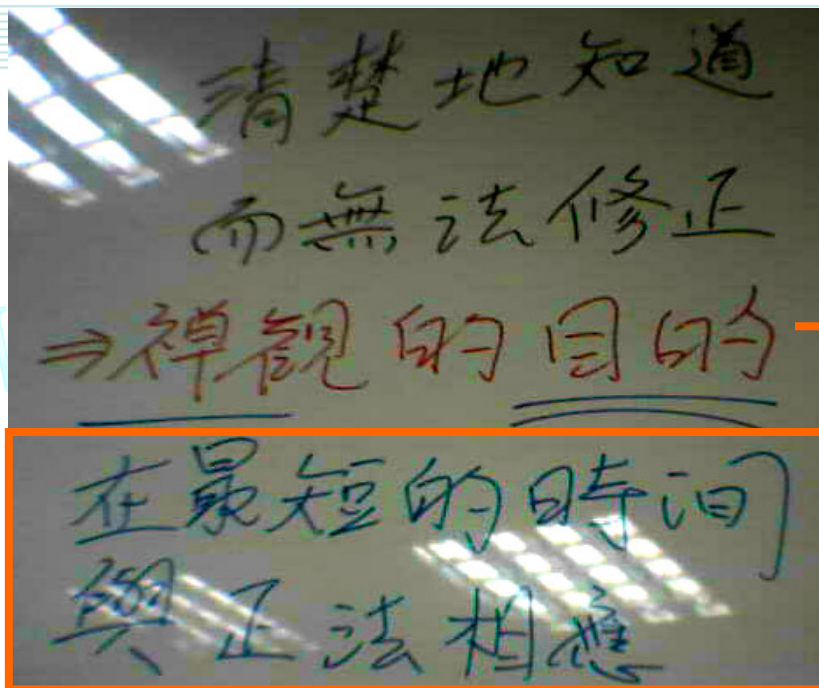 清楚地知道
而無法修正
⇒禅観的目的
在最短的時间
與正法相應